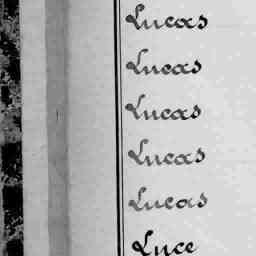 Lucas
Lucas
Lucas
Lucas
Lucas
Luce